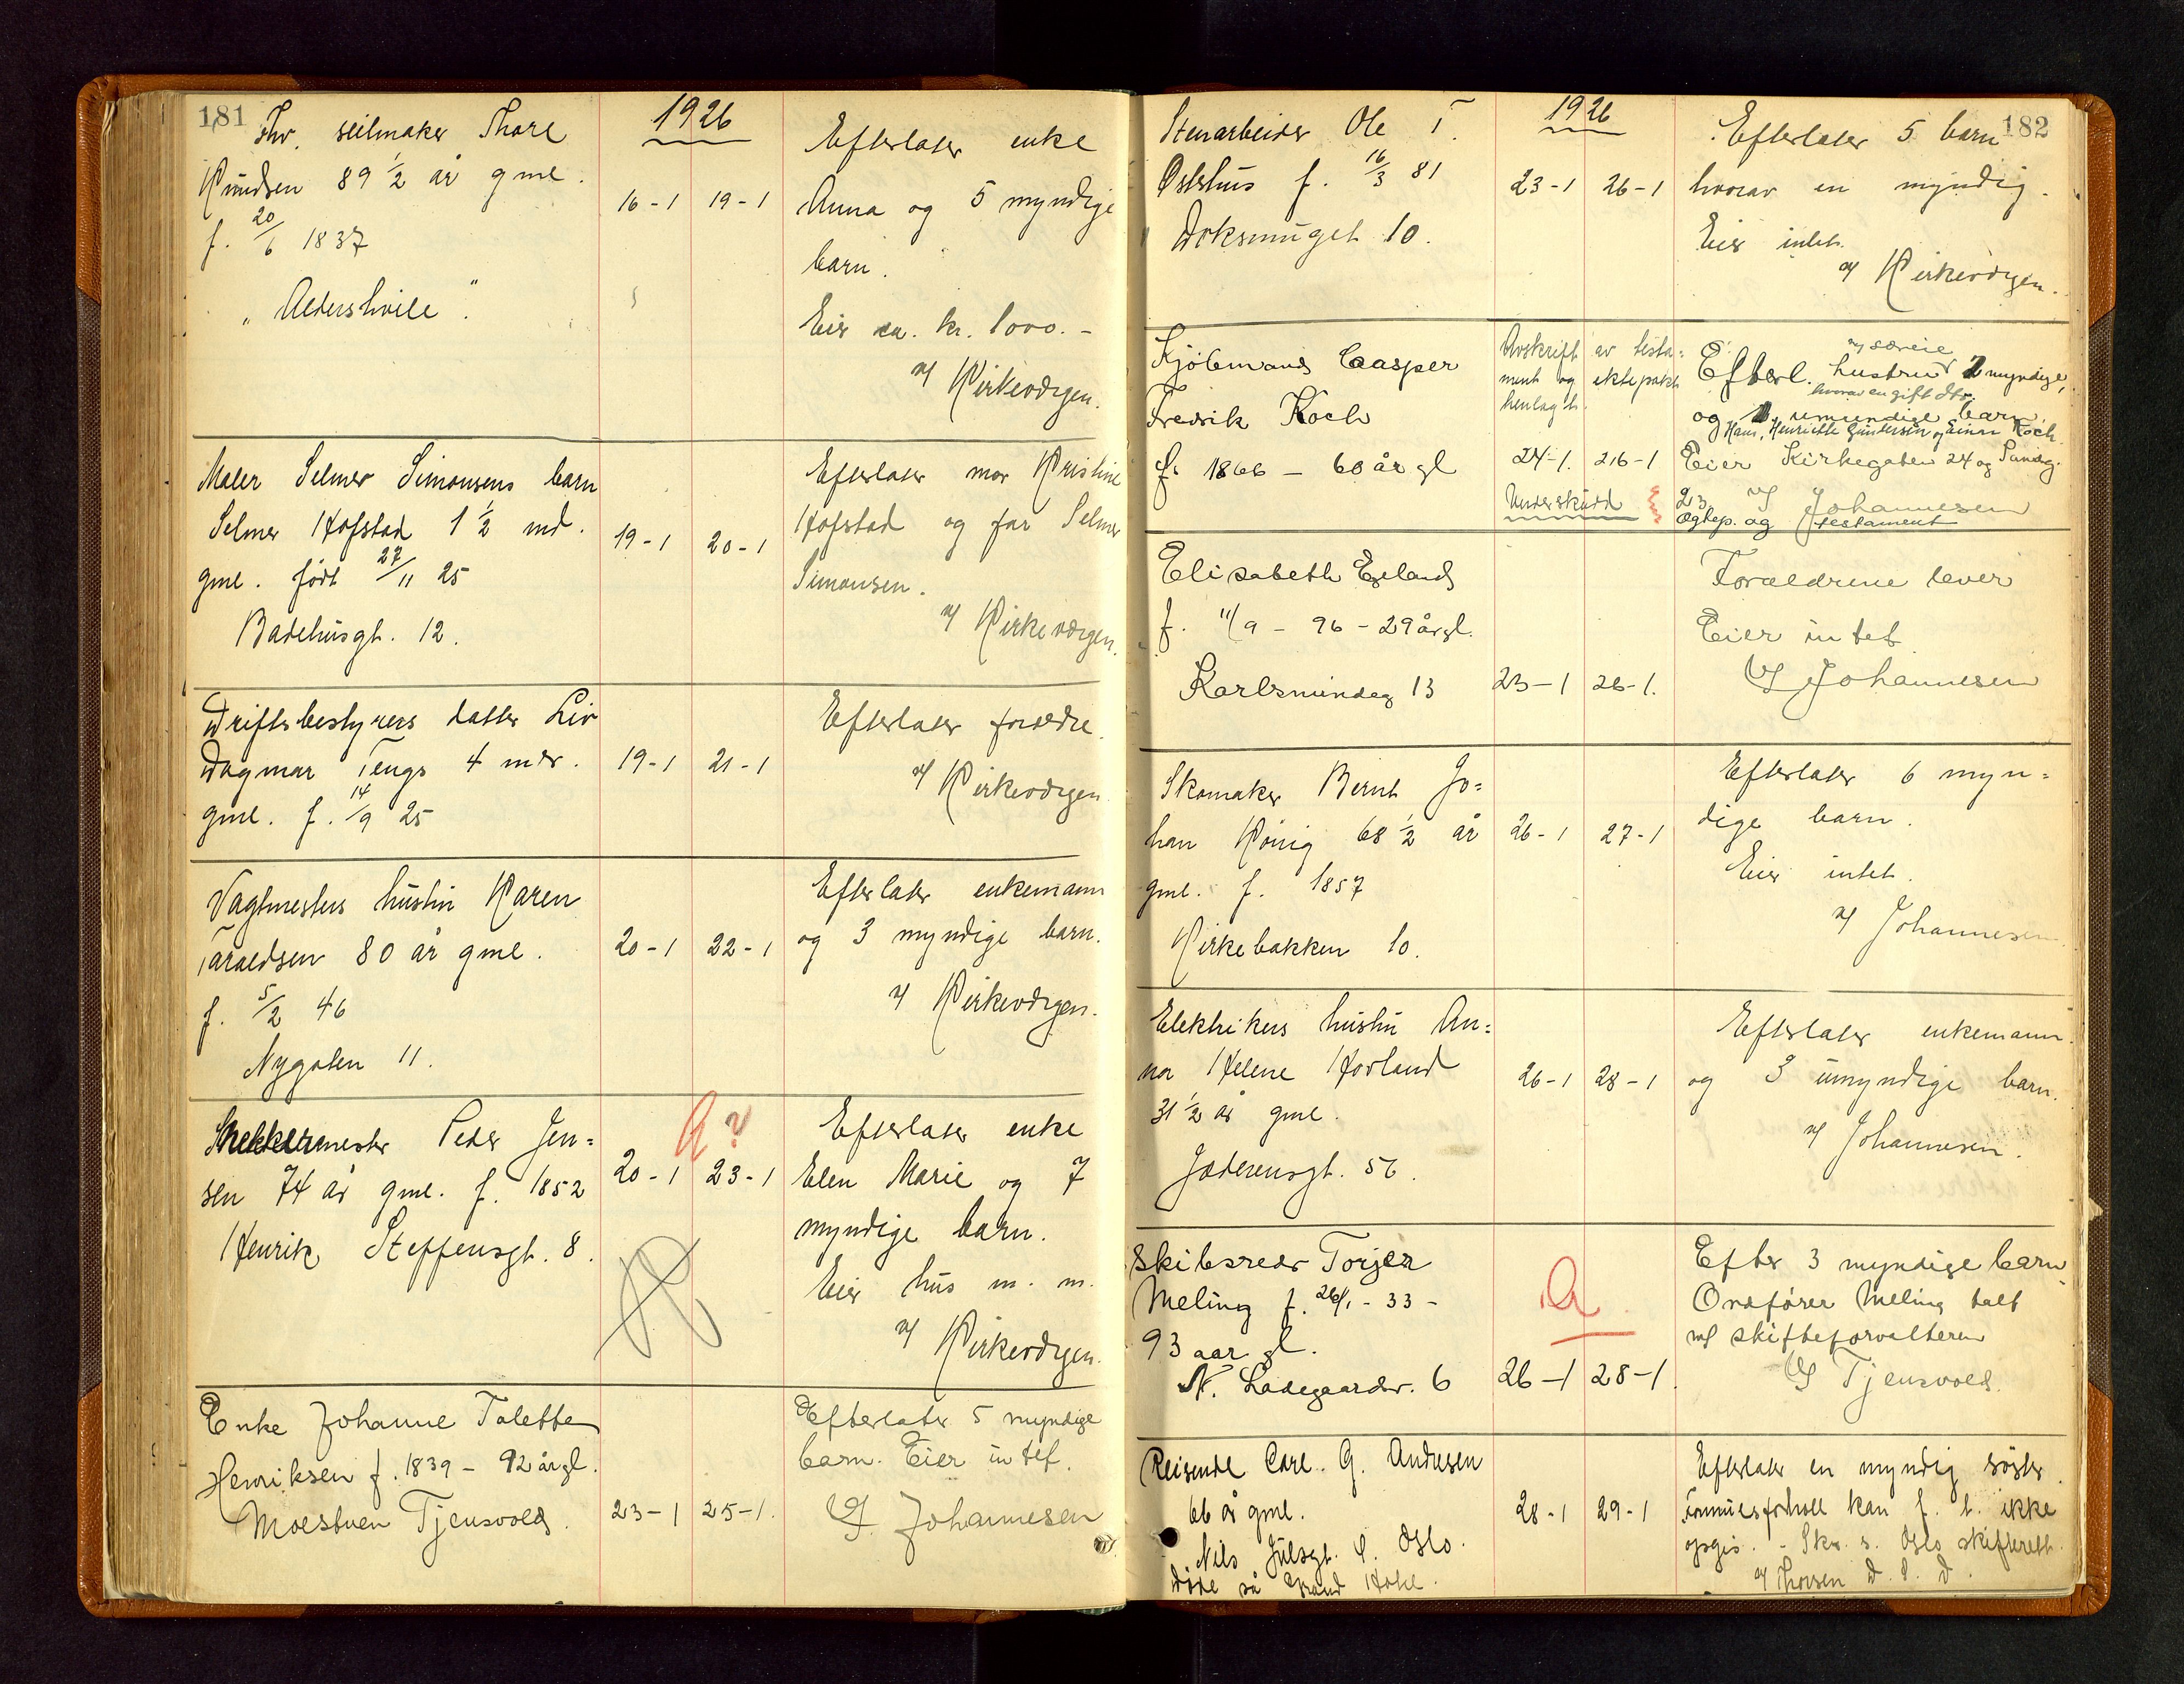 181
Fhv. seilmaker Thore
Knudsen 89 1/2 år gml.
f. 20/6 1837
"Aldershvile".
1926
16-1 19-1
Efterlater enke
Anna og 5 myndige
barn.
Eier ca. kr. 1000.-
v/ Kirkevergen.
Maler Selmer Simonsens barn
Selmer Hofstad 1 1/2 md.
gml. født 27/11 25
Badehusgt. 12.
19-1 20-1
Efterlater mor Kristine
Hofstad og far Selmer
Simonsen.
v/ Kirkevergen.
Driftsbestyrers datter Liv
Dagmar Tengs 4 mdr.
gml. f. 14/9 25
19-1 21-1
Efterlater foreldre.
v/ Kirkevergen
Vagtmesters hustru Karen
Taraldsen 80 år gml.
f. 5/2 46
Nygaten 11.
20-1 22-1
Efterlater enkemann
og 3 myndige barn.
v/ Kirkevergen.
Snekkermester Peder Jen=
sen 74 år gml. f. 1852
Henrik Steffensgt. 8.
A?
20-1 23-1
Efterlater enke
Elen Marie og 7
myndige barn.
Eier hus m. m.
v/ Kirkevergen.
Enke Johanne Talette
Henriksen f. 1839 - 92 år gl.
Moestuen Tjensvold.
23-1 25-1.
Efterlater 5 myndige
barn. Eier intet.
v/ Johannesen
182
Stenarbeider Ole T.
Østhus f. 16/3 81
Doksmuget 10.
1926
23-1 26-1
Efterlater 5 barn
hvorav en myndig.
Eier intet.
v/ Kirkevergen.
Kjøbmand Casper
Fredrik Koch
f. 1866 - 60 år gl
Avskrift av testa=
ment og ektepakt
henlagt.
24-1. 26-1
Underskudd
v/ særeie
Efterl. hustru 2 myndige,
hvorav en gift dtr.
og umyndige barn
Hans, Henriette Gundersen og Einar Koch.
Eier Kirkegaten 24 og Sundg.
23 v/ Johannesen
Egtep. og testament
Elisabeth Egeland
f. 11/9 - 96 - 29 år gl.
Karlsmindeg 13
23-1 26-1.
Forældrene lever
Eier intet
v/ Johannesen
Skomaker Bernt Jo=
han König 68 1/2 år
gml. f. 1857
Kirkebakken 10.
26-1 27-1
Efterlater 6 myn=
dige barn.
Eier intet.
v/ Johannesen.
Elektrikers hustru An=
na Helene Hovland
31 1/2 år gml.
Jæderensgt. 56.
26-1 28-1
Efterlater enkemann.
og 3 umyndige barn.
v/ Johannesen.
Skibsreder Torger
Meling f. 26/1 - 33 -
93 aar gl.
N. Ladegaardsv. 6
A
26-1 28-1.
Efter 3 myndige barn.
Ordfører Meling talt
m/ skifteforvalteren
v/ Tjensvold.
Reisende Carl. G. Andresen
66 år gml.
Nils Juelsgt. Oslo.
Døde på Grand Hotel.
28-1 29-1
Efterlater en myndig søster.
Formuesforhold kan f. t. ikke
opgis. - Skr. s. Oslo skifterett.
v/ Thorsen